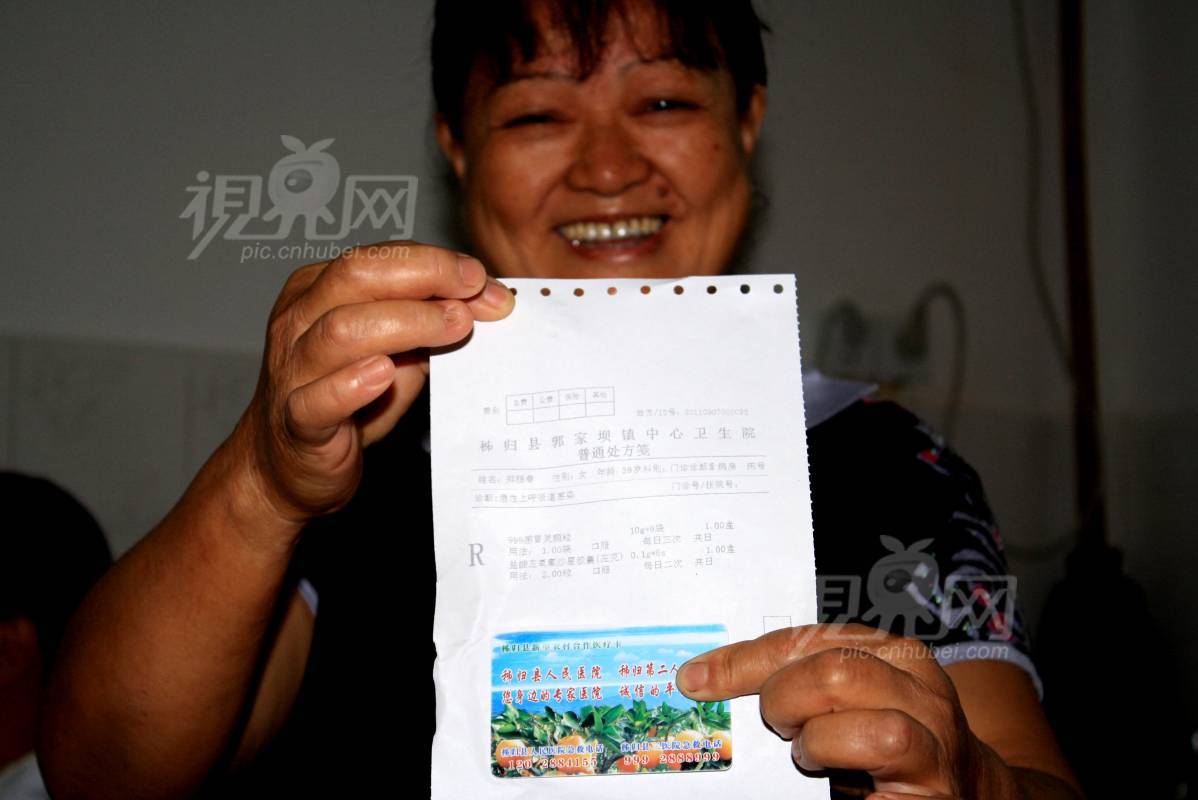 视界网
pic.cnhubei.com
费别
公费
医保
其他
秭归县郭家坝镇中心卫生院
普通处方笺
姓名：
性别：女 年龄：
门诊号/住院号：
诊断：急性上呼吸道感染
999感冒灵颗粒 10g*9袋 1.00盒
用法： 1.00袋 口服 每日三次 共日
R
盐酸左氧氟沙星胶囊(左克) 0.1g*6s 1.00盒
用法： 2.00粒 口服 每日二次 共日
秭归县新型农村合作医疗卡
秭归县人民医院 秭归第二人
您身边的专家医院 诚信的平
秭归县人民医院急救电话 秭归县二医院急救电话
120 2884155 999 2888999
视界网
pic.cnhubei.com